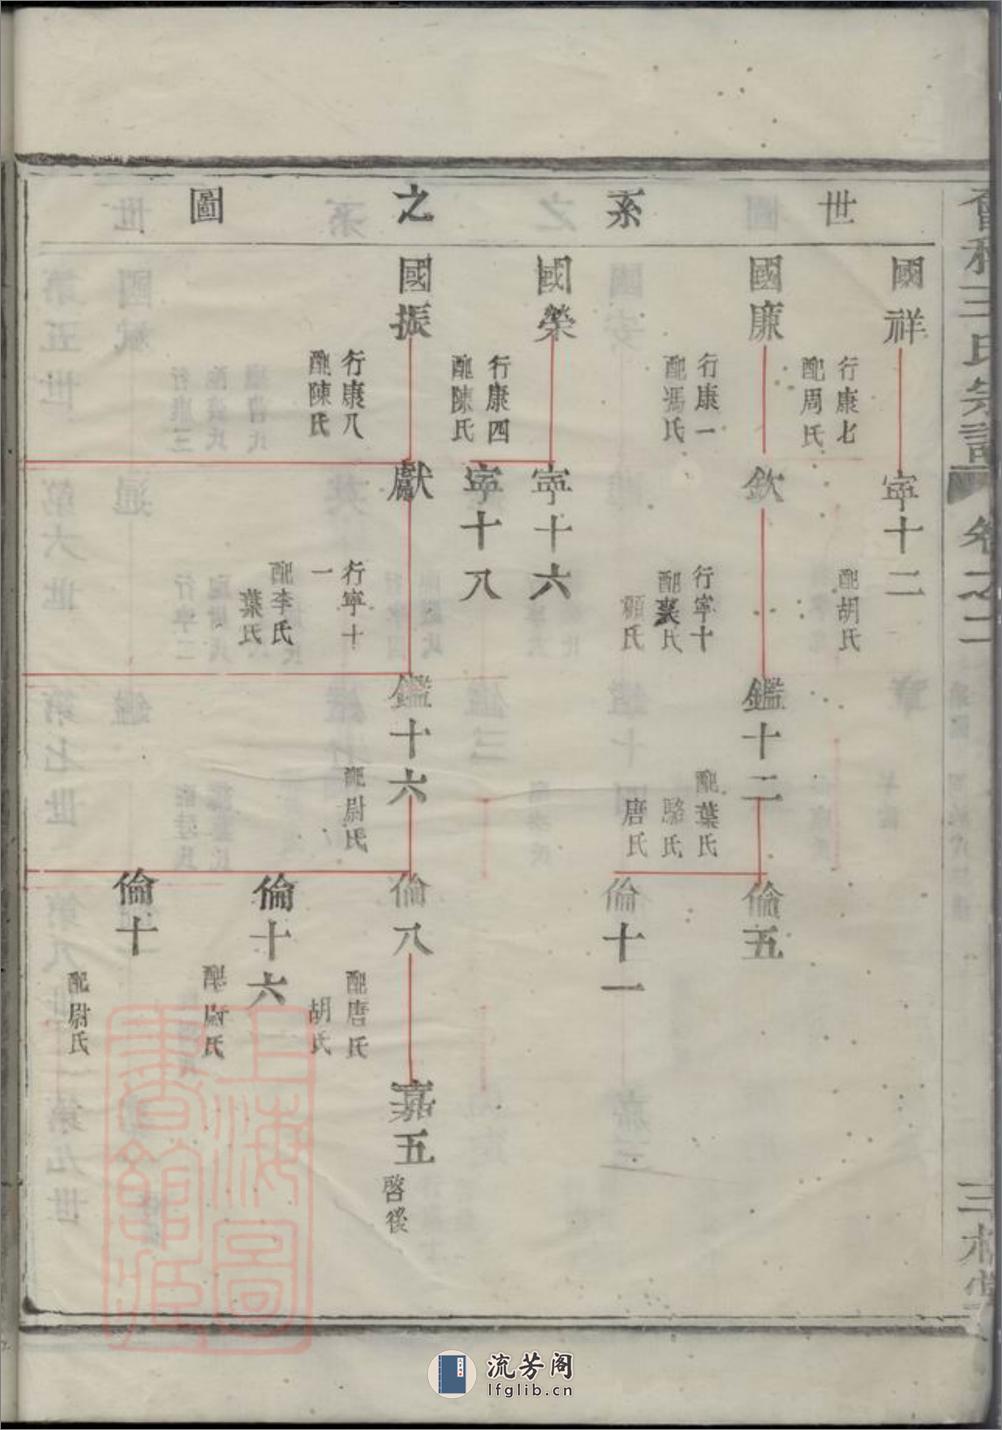 會稽王氏宗譜 卷之二 三槐堂
世系之圖
國祥
行康七
配周氏
寧十二
配胡氏
國廉
行康一
配馮氏
欽
行寧十
配裘氏
顧氏
鑑十二
配葉氏
駱氏
唐氏
倫五
倫十一
國榮
行康四
配陳氏
寧十六
寧十八
國振
行康八
配陳氏
獻
行寧十一
配李氏
葉氏
鑑十六
配尉氏
倫八
配唐氏
胡氏
嘉五
啓後
倫十六
配尉氏
倫十
配尉氏
上海圖書館藏
流芳阁
lfglib.cn